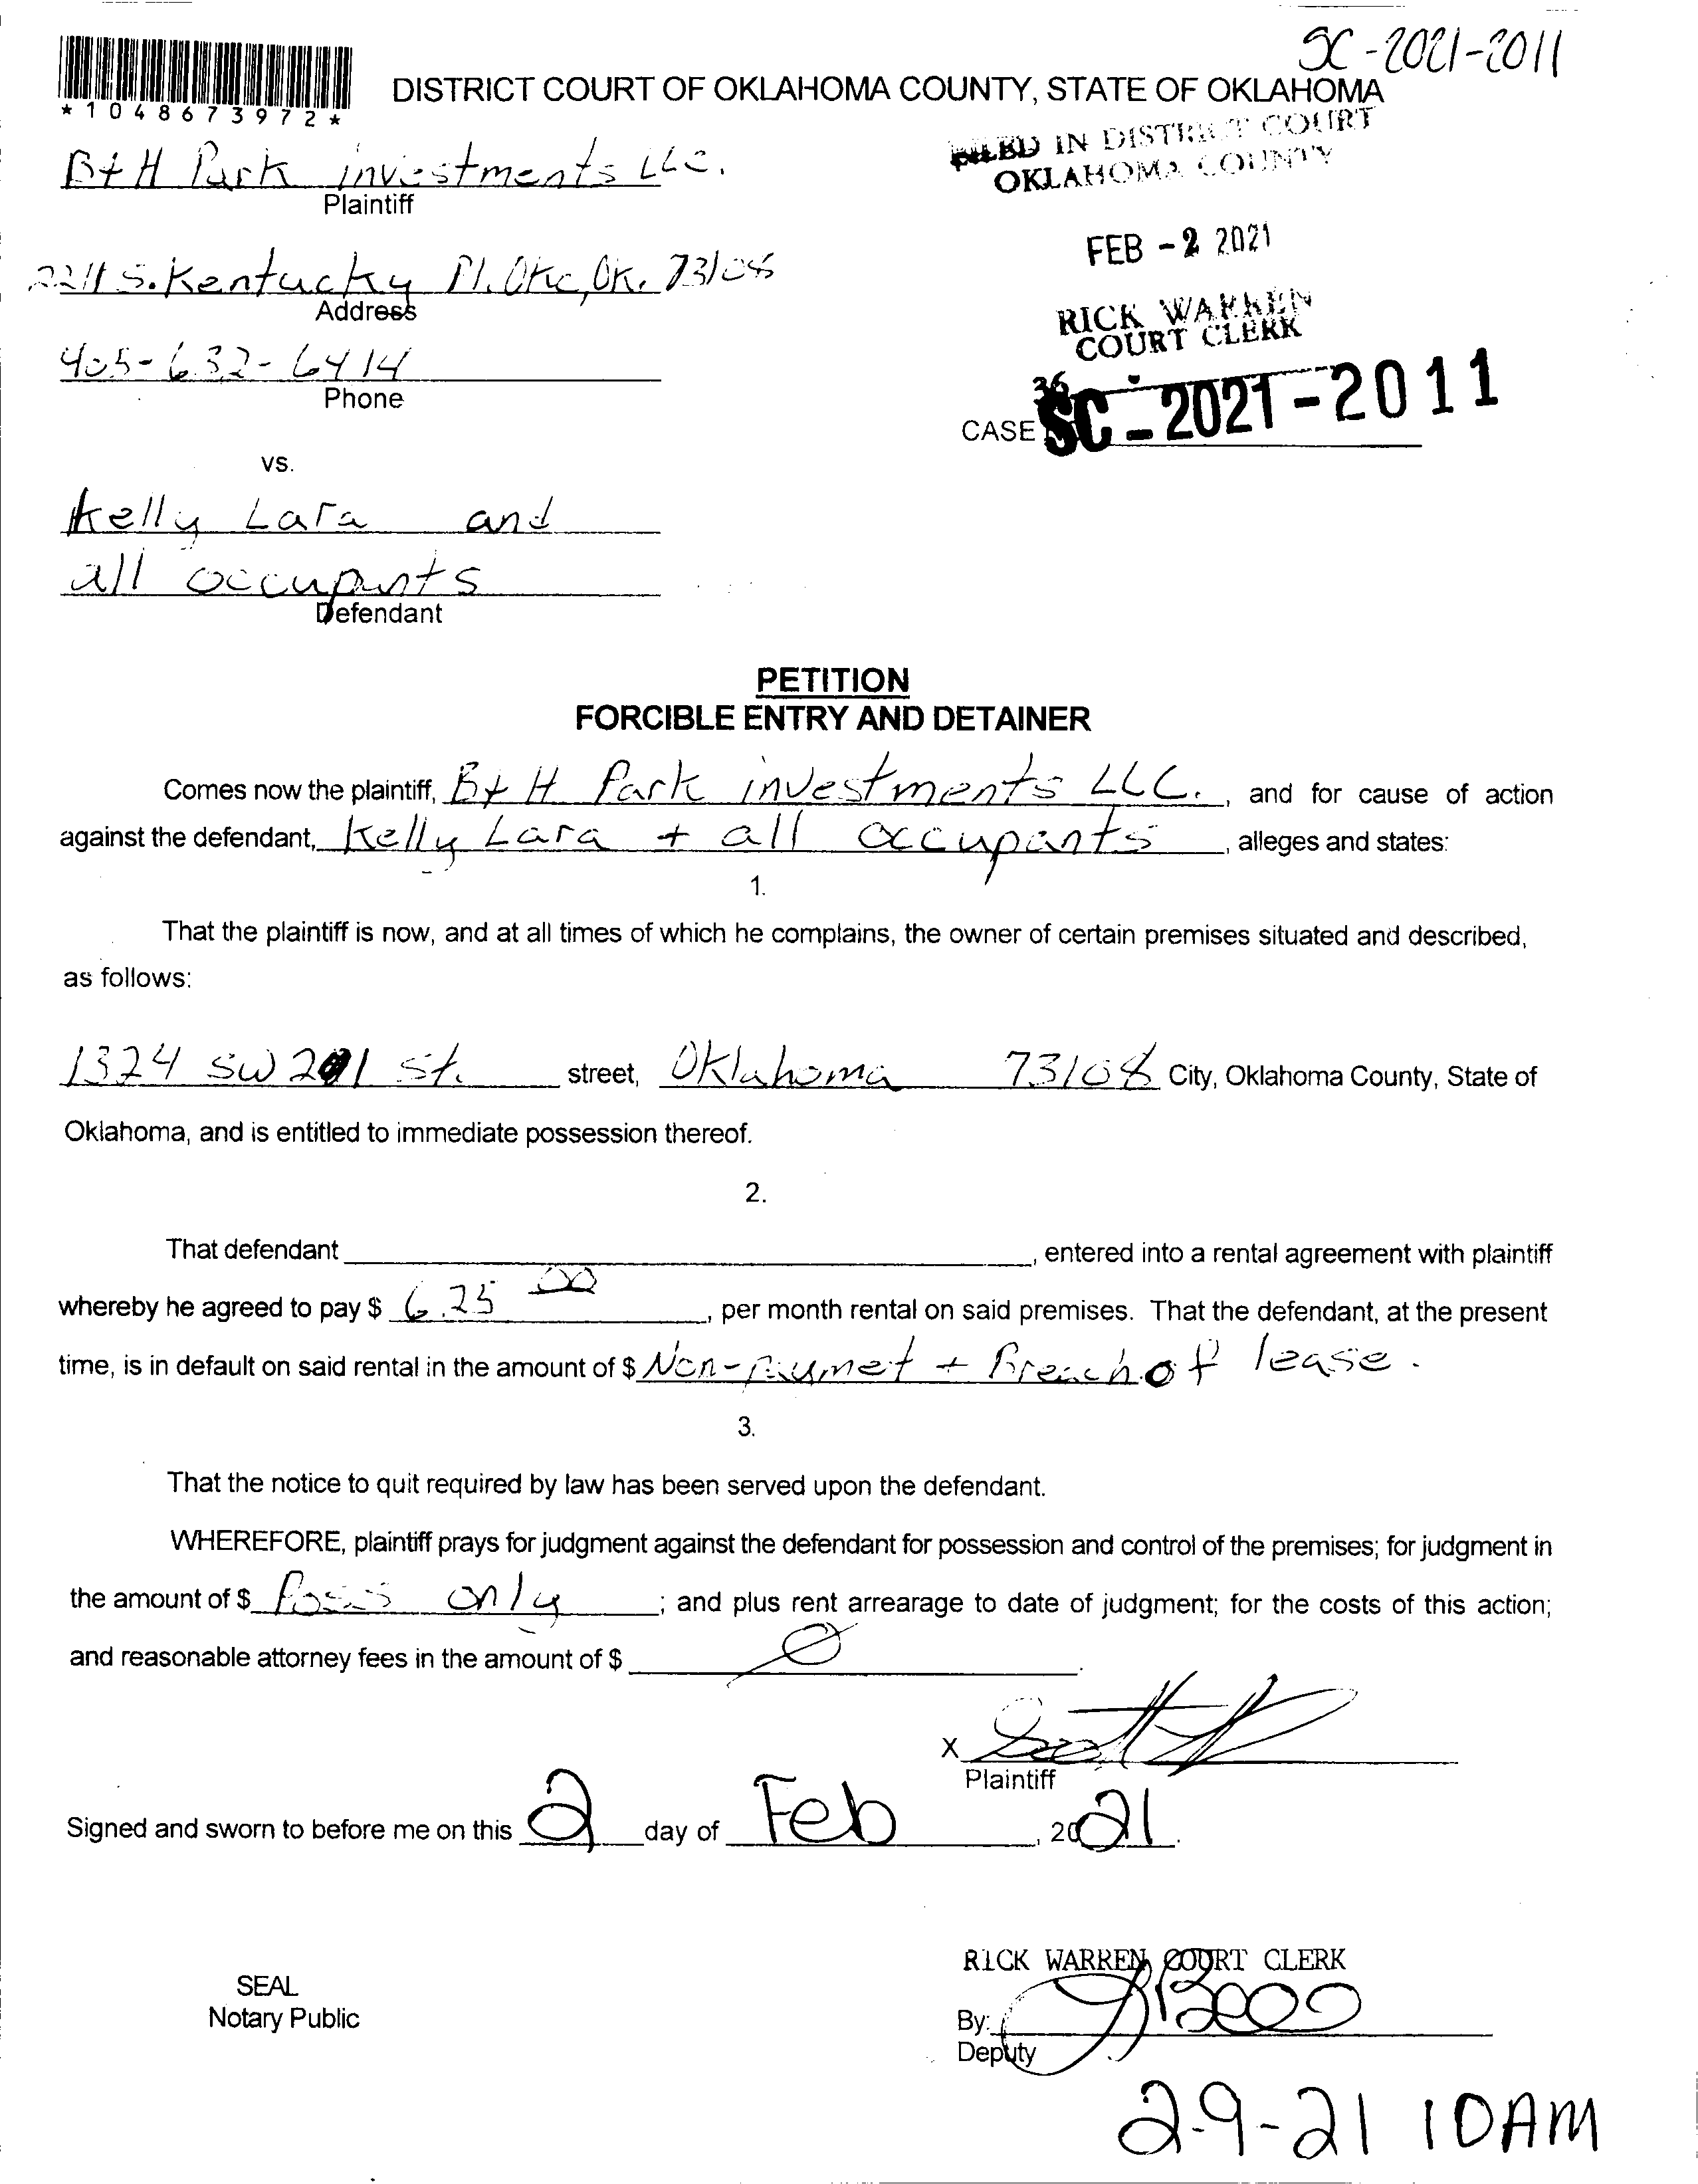 SC-2021-2011
*1048673972*
DISTRICT COURT OF OKLAHOMA COUNTY, STATE OF OKLAHOMA
FILED IN DISTRICT COURT
OKLAHOMA COUNTY
B+H Park investments LLC.
Plaintiff
FEB -2 2021
2211 S. Kentucky Pl. Okc, Ok. 73108
Address
RICK WARREN
COURT CLERK
405-632-6414
Phone
36
CASE SC-2021-2011
vs.
Kelly Lara and
all occupants
Defendant
PETITION
FORCIBLE ENTRY AND DETAINER
Comes now the plaintiff, B+H Park investments LLC., and for cause of action
against the defendant, Kelly Lara + all occupants, alleges and states:
1.
That the plaintiff is now, and at all times of which he complains, the owner of certain premises situated and described,
as follows:
1324 SW 21 St. street, Oklahoma 73108 City, Oklahoma County, State of
Oklahoma, and is entitled to immediate possession thereof.
2.
That defendant , entered into a rental agreement with plaintiff
whereby he agreed to pay $ 6.25 00, per month rental on said premises. That the defendant, at the present
time, is in default on said rental in the amount of $ Non-paymet + Breach of lease.
3.
That the notice to quit required by law has been served upon the defendant.
WHEREFORE, plaintiff prays for judgment against the defendant for possession and control of the premises; for judgment in
the amount of $ Poss only; and plus rent arrearage to date of judgment; for the costs of this action;
and reasonable attorney fees in the amount of $ 0.
X
Plaintiff
Signed and sworn to before me on this 2 day of Feb, 2021.
RICK WARREN COURT CLERK
SEAL
Notary Public
By:
Deputy
2-9-21 10AM